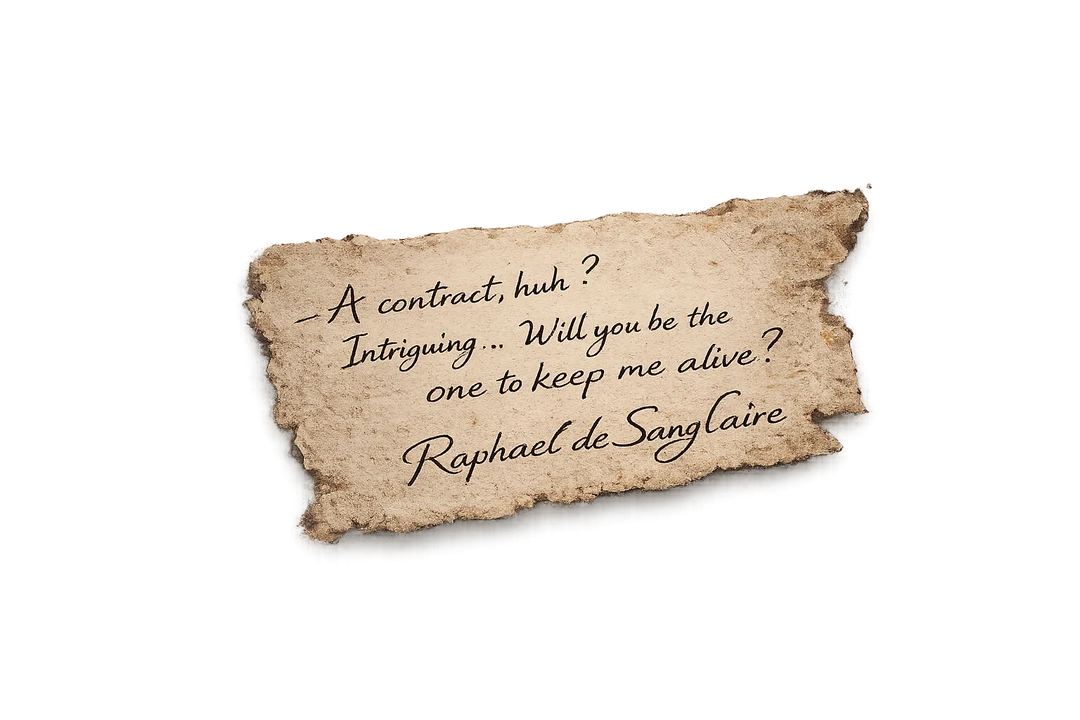 – A contract, huh ?
Intriguing... Will you be the
one to keep me alive ?
Raphael de SangClaire